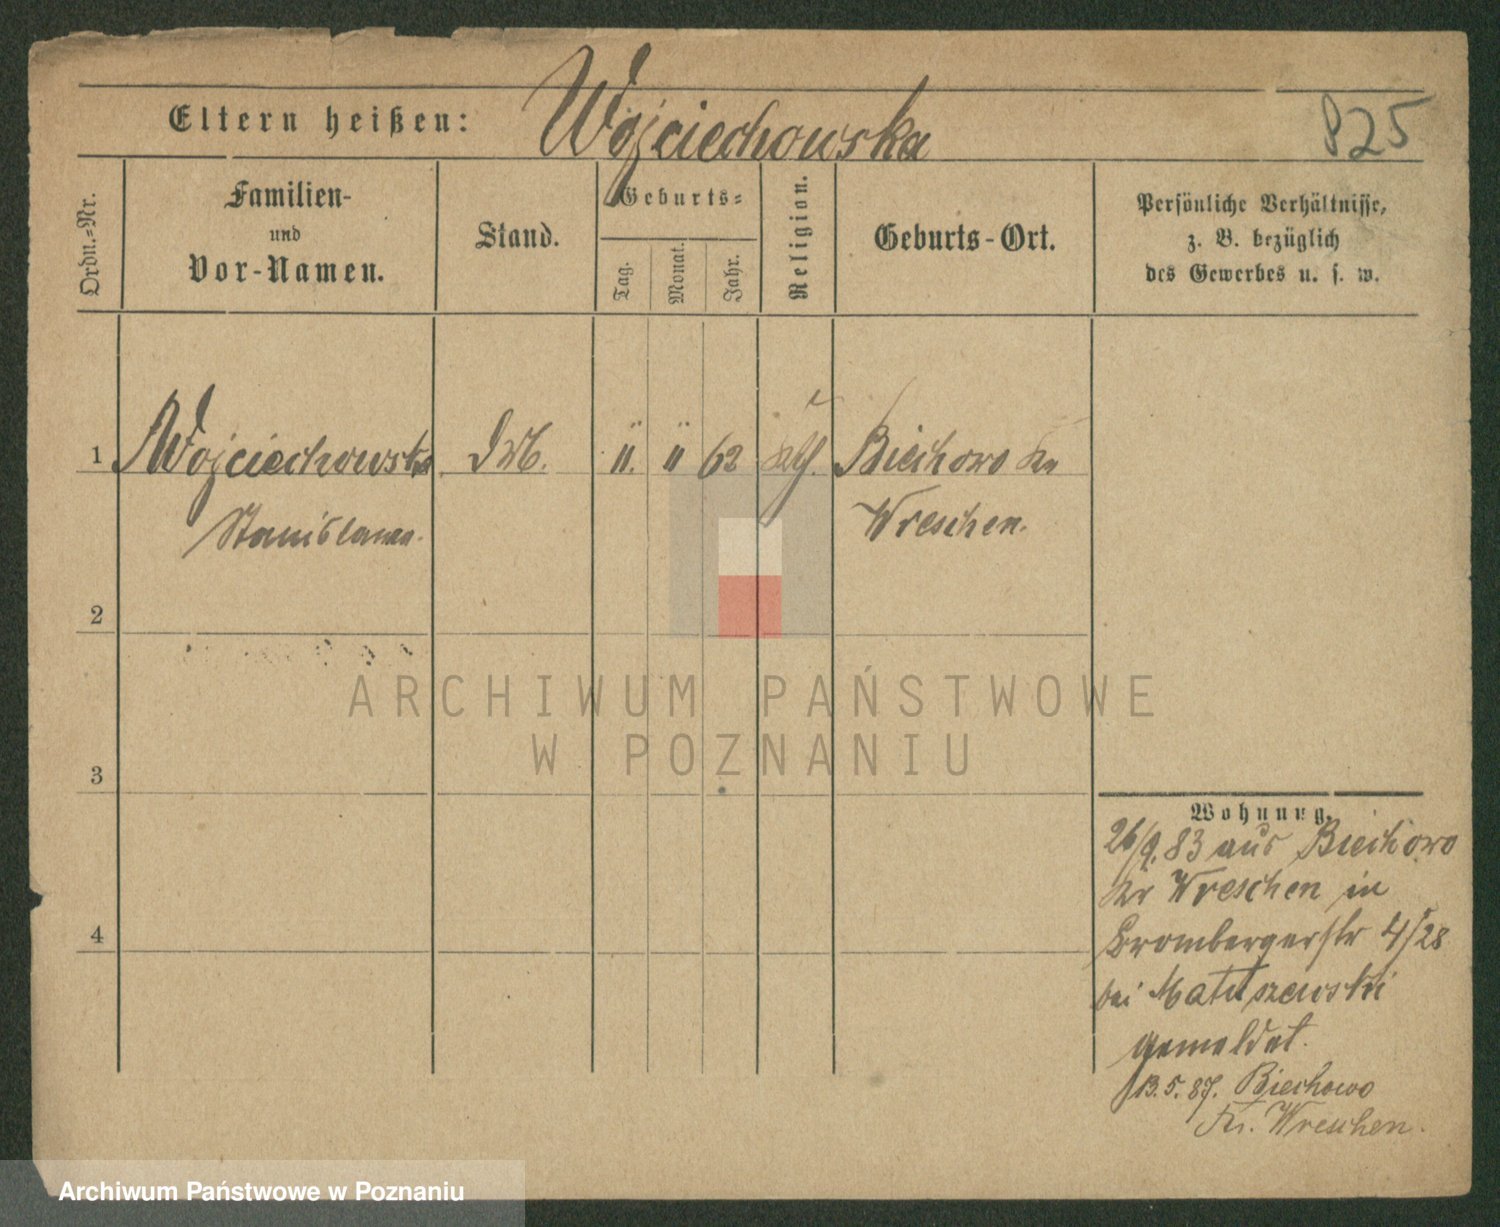 Eltern heißen: Wojciechowska
825
Ordn.-Nr.
Familien-
und
Vor-Namen.
Stand.
Geburts-
Tag.
Monat.
Jahr.
Religion.
Geburts-Ort.
Persönliche Verhältnisse,
z. B. bezüglich
des Gewerbes u. s. w.
1 Wojciechowska 11. 11 62 kth. Biechowo Kr
Stanislawa. Wreschen.
2
ARCHIWUM PAŃSTWOWE
W POZNANIU
3
Wohnung.
26/9. 83 aus Biechowo
Kr Wreschen in
Brombergerstr 4/28
4
bei Matuszewski
gemeldet.
13.5.87. Biechowo
Kr. Wreschen.
Archiwum Państwowe w Poznaniu